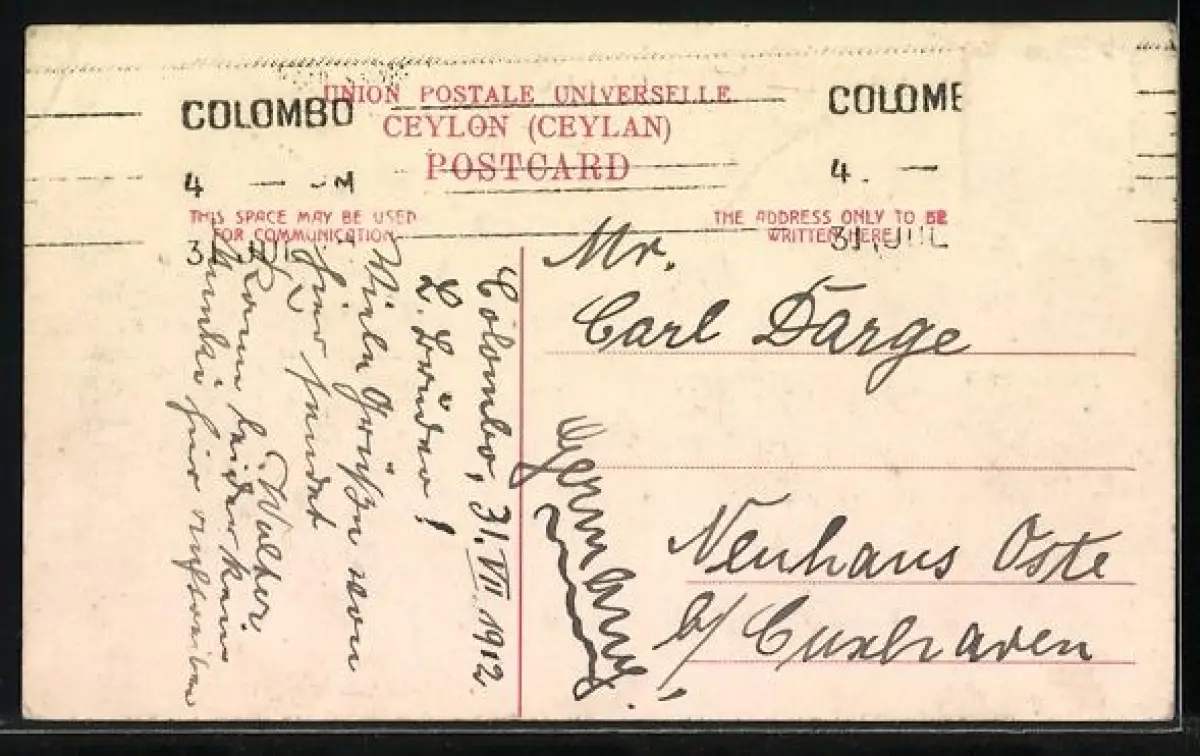 UNION POSTALE UNIVERSELLE
CEYLON (CEYLAN)
POSTCARD
COLOMBO
4 — M
31 JUL
COLOMB
4. —
31 JUL
THIS SPACE MAY BE USED
FOR COMMUNICATION
THE ADDRESS ONLY TO BE
WRITTEN HERE
Colombo, 31.VII.1912.
L. Brüder!
Viele Grüße von
hier sendet
Walter
Kann leider kein
hier aufschreiben
Mr.
Carl Darge
Neuhaus Oste
b/ Cuxhaven
Germany!